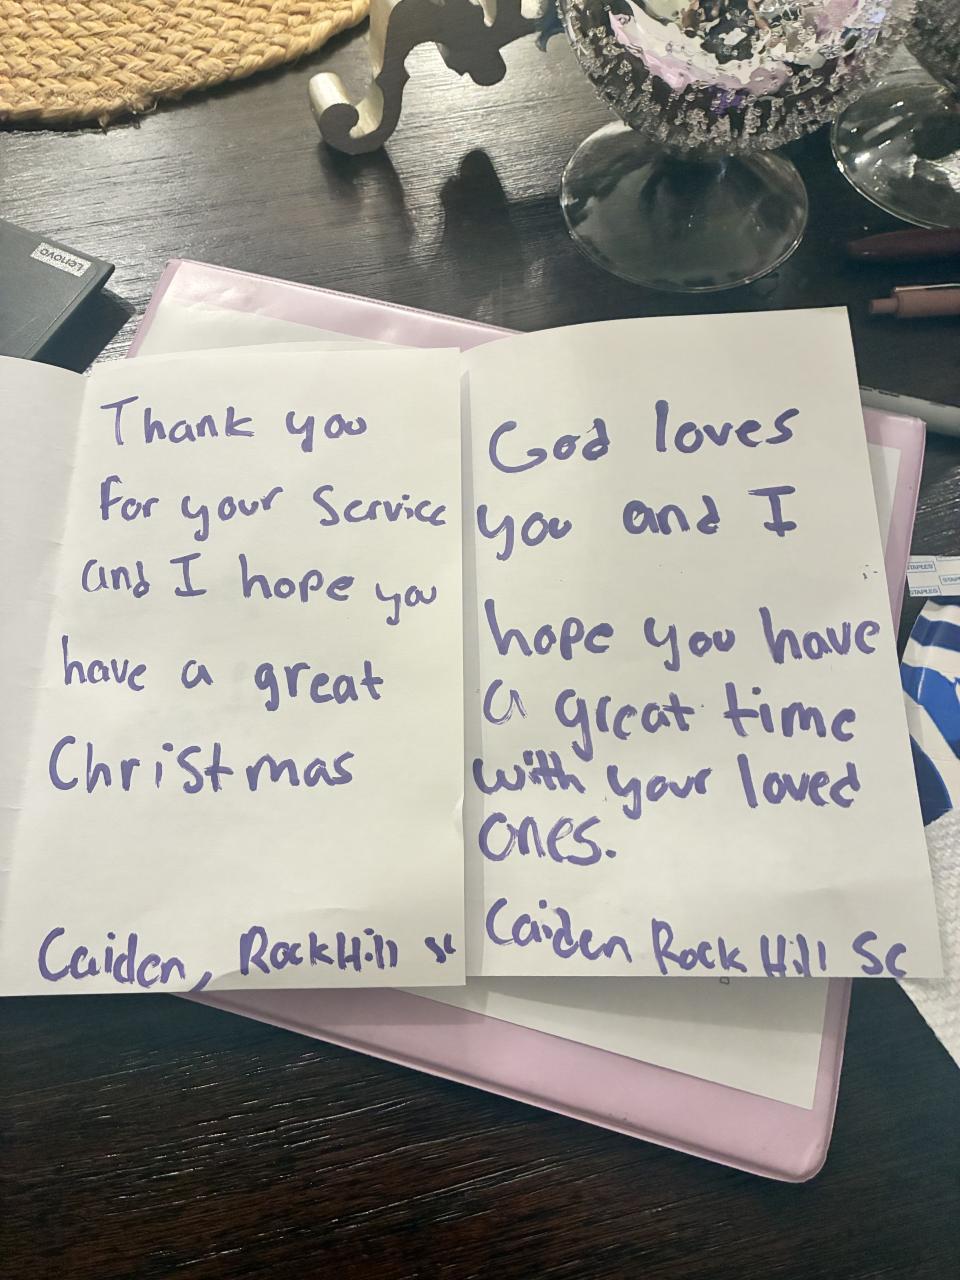 Lenovo
Thank you
For your Service
and I hope you
have a great
Christmas
Caiden, Rock Hill SC
God loves
you and I
hope you have
a great time
with your loved
ones.
Caiden Rock Hill SC
STAPLES
STAPLES